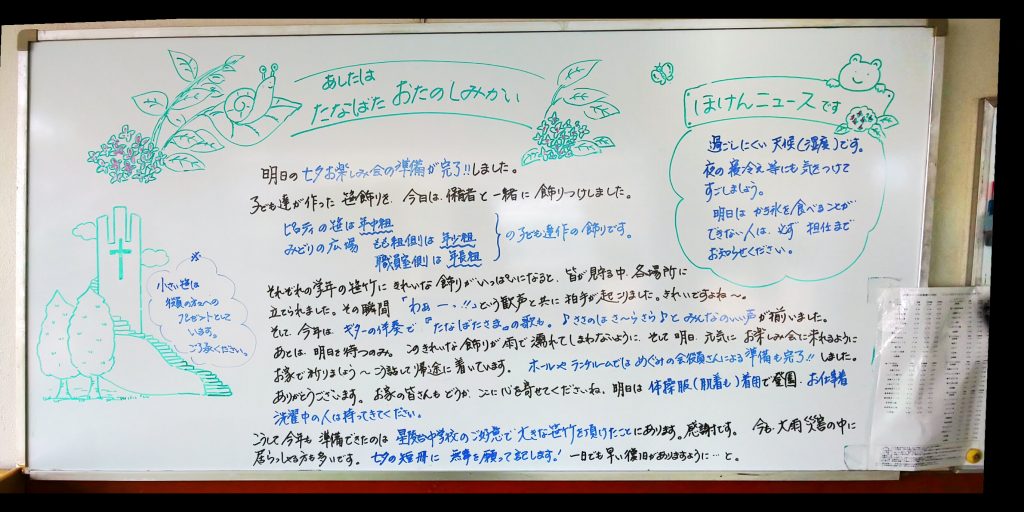 あしたは
たなばた おたのしみかい
明日の七夕お楽しみ会の準備が完了!!しました。
子ども達が作った笹飾りを、今日は、保護者と一緒に飾りつけしました。
ピロティの笹は年中組
みどりの広場 もも組側は年少組
職員室側は年長組
の子ども達作の飾りです。
それぞれの学年の笹竹にきれいな飾りがいっぱいになると、皆が見守る中、各場所に
立てられました。その瞬間「わぁー!!」という歓声と共に拍手が起こりました。きれいですよね〜。
そして、今年は、ギターの伴奏で『たなばたさま』の歌も。♪ささのは さ〜らさら♪とみんなのいい声が揃いました。
あとは、明日を待つのみ。このきれいな飾りが雨で濡れてしまわないように、そして明日、元気にお楽しみ会に来れるように
お家で祈りましょう〜と話して帰途に着いています。ホールやランチルームではめぐみの会役員さんによる準備も完了!!しました。
ありがとうございます。お家の皆さんもどうか、心を寄せてくださいね。明日は体操服(肌着も)着用で登園、お仕事着
洗濯中の人は持ってきてください。
こうして今年も準備できたのは星陵台中学校のご好意で大きな笹竹を頂けたことにあります。感謝です。今も大雨災害の中に
居らっしゃる方も多いです。七夕の短冊に無事を願って記します!一日でも早い復旧がありますように…と。
小さい笹は
役員の方々への
プレゼントとして
います。
ご了承ください。
ほけんニュースです
過ごしにくい天候(湿度)です。
夜の寝冷え等にも気をつけて
すごしましょう。
明日はかき氷を食べることが
できない人は、必ず担任まで
お知らせください。